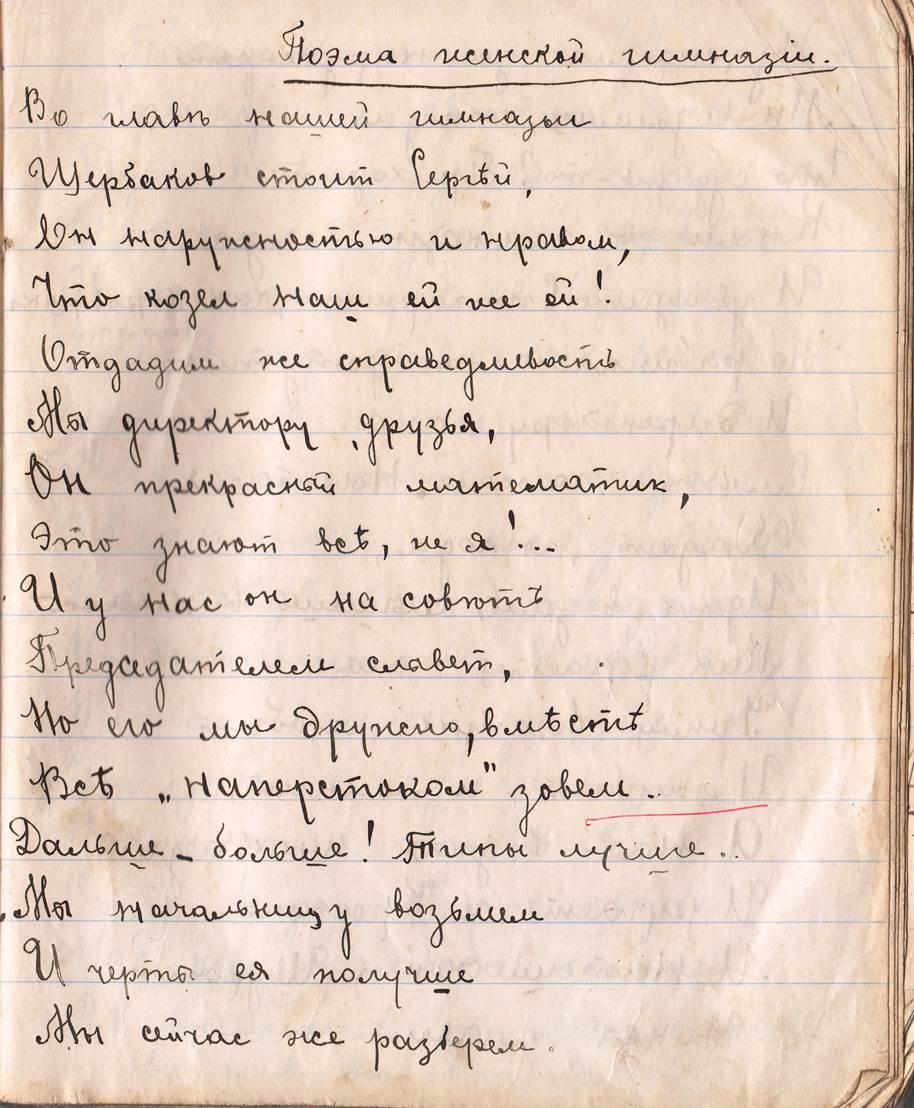 Поэма женской гимназіи.
Во главѣ нашей гимназьи
Щербаков стоит Сергѣй,
Он наружностью и нравом,
Что козел наш ей же ей!
Отдадим же справедливость
Мы директору, друзья,
Он прекрасный математик,
Это знают всѣ, не я!...
И у нас он на совѣтѣ
Председателем слывет,
Но его мы дружно, вмѣстѣ
Всѣ „наперстоком" зовем..
Дальше - больше! Типы лучше..
Мы начальницу возьмем
И черты ея получше
Мы сейчас же разберем.